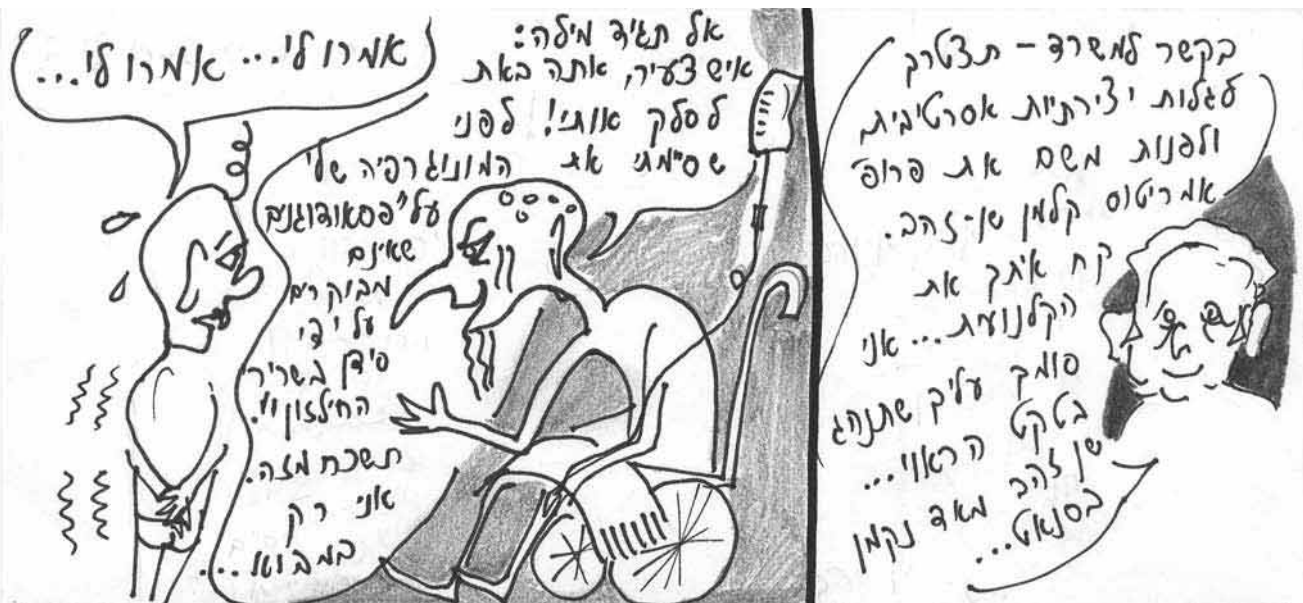 בקשר למשרד – תצטרך
לגלות יצירתיות אסרטיבית
ולפנות משם את פרופ'
אמריטוס קלמן שן-זהב.
קח איתך את
הקלנועית... אני
סומך עליך שתנהג
בטקט הראוי...
שן זהב מאד נקמן
בסנאט...
אל תגיד מילה:
איש צעיר, אתה באת
לסלק אותי! לפני
שסיימתי את המונוגרפיה שלי
על "פסאודוגנים
שאינם
מבוקרים
על ידי
בשריר
החילזון".
תשכח מזה.
אני רק
במבוא...
אמרו לי... אמרו לי...